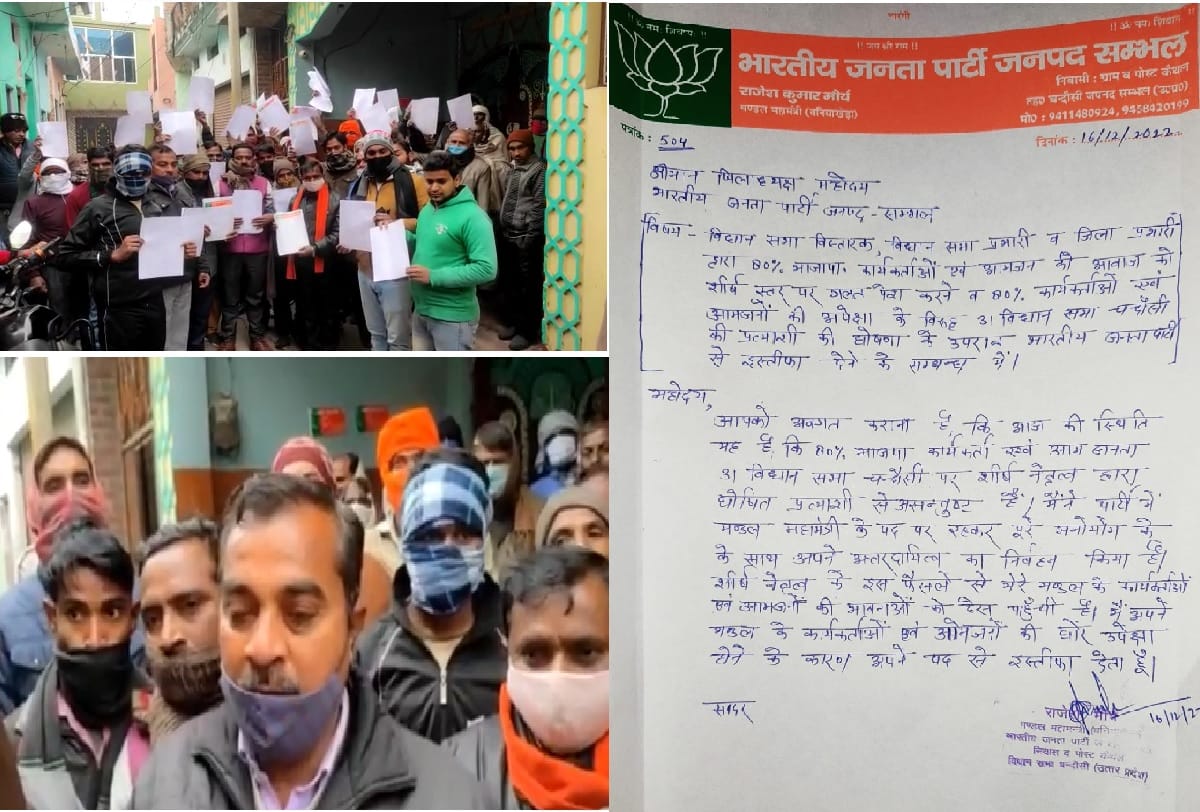 नारंगी
|| ॐ नमः शिवाय ||
|| जय श्री राम ||
|| ॐ नमः शिवाय ||
भारतीय जनता पार्टी जनपद सम्भल
राजेश कुमार मौर्य
मण्डल महामंत्री (बनियाखेड़ा)
निवासी : ग्राम व पोस्ट कैथल
तह0 चन्दौसी जनपद सम्भल (उ0प्र0)
मो0 : 9411480924, 9458420199
पत्रांक : 504
दिनांक : 16/12/2022
श्रीमान जिलाध्यक्ष महोदय
भारतीय जनता पार्टी जनपद - सम्भल
विषय - विधान सभा विस्तारक, विधान सभा प्रभारी व जिला प्रभारी
द्वारा 80% भाजपा कार्यकर्ताओं एवं आमजन की आवाज को
शीर्ष स्तर पर गलत पेश करने व 80% कार्यकर्ताओं एवं
आमजनों की अपेक्षा के विरुद्ध 31 विधान सभा चन्दौसी
की प्रत्याशी की घोषणा के उपरान्त भारतीय जनता पार्टी
से इस्तीफा देने के सम्बन्ध में।
महोदय,
आपको अवगत कराना है, कि आज की स्थिति
यह है, कि 80% भाजपा कार्यकर्ता एवं आम जनता
31 विधान सभा चन्दौसी पर शीर्ष नेतृत्व द्वारा
घोषित प्रत्याशी से असन्तुष्ट है। मैंने पार्टी में
मण्डल महामंत्री के पद पर रहकर पूरे मनोयोग के
के साथ अपने उत्तरदायित्व का निर्वहन किया है।
शीर्ष नेतृत्व के इस फैसले से मेरे मण्डल के कार्यकर्ताओं
एवं आमजनों की भावनाओं को ठेस पहुँची है। मैं अपने
मण्डल के कार्यकर्ताओं एवं आमजनों की घोर उपेक्षा
होने के कारण अपने पद से इस्तीफा देता हूँ।
सादर
राजेश मौर्य
16/12/2
मण्डल महामन्त्री
भारतीय जनता पार्टी
निवास व पोस्ट कैथल
विधान सभा चन्दौसी (उत्तर प्रदेश)